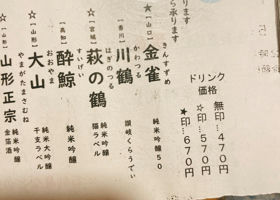 ります
ら承ります
ドリンク
価格
無印…470円
☆印…570円
★印…670円
【山口】
きんすずめ
★金雀
純米吟醸50
【香川】
かわつる
川鶴
讃岐くらうでぃ
【宮城】
はぎのつる
☆萩の鶴
純米吟醸
猫ラベル
【高知】
すいげい
酔鯨
純米吟醸
【山形】
おおやま
☆大山
純米大吟醸
干支ラベル
【山形】
やまがたまさむね
山形正宗
純米吟醸
金箔酒